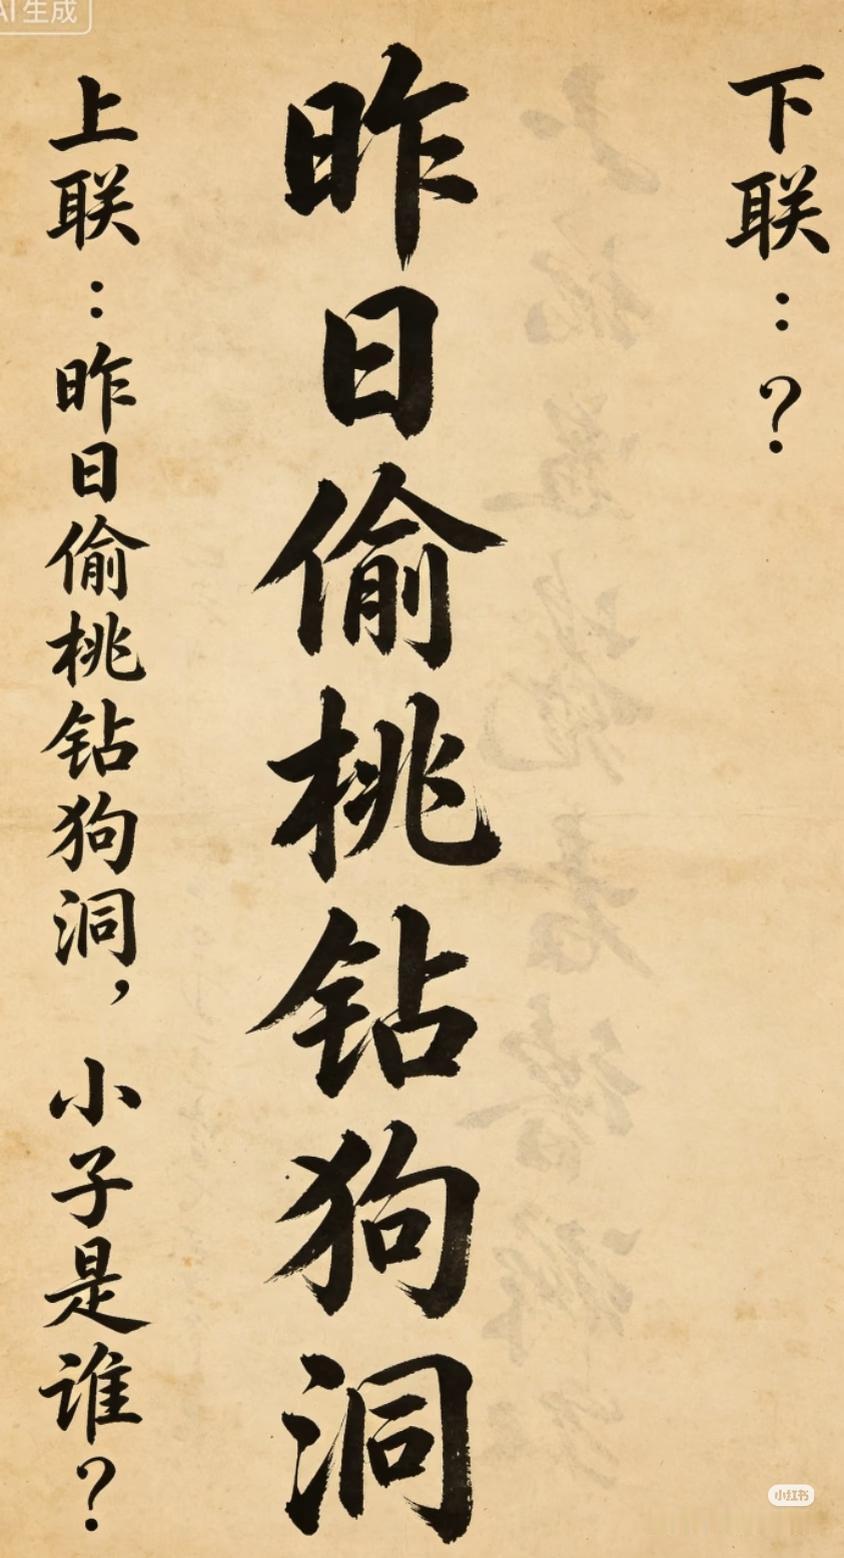 AI生成
上联：昨日偷桃钻狗洞，小子是谁？
昨日偷桃钻狗洞
下联：？
小红书